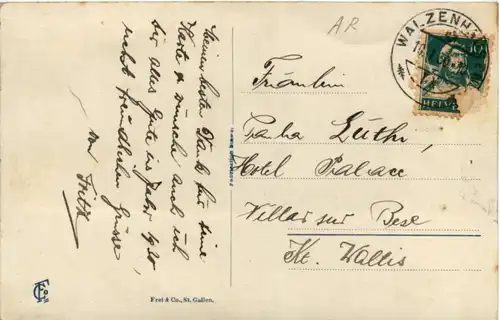 Meinen besten Dank für Deine
Karte & wünsche auch ich
dir alles Gute ins Jahr 1920,
nebst freundlichen Grüsse
von Fritz
AR
WALZENH
10
HELVE
Fräulein
Lüthi,
Hotel Palace
Villar sur Bex
Kt. Wallis
Frei & Co., St. Gallen.